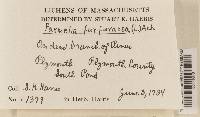 LICHENS OF MASSACHUSETTS
DETERMINED BY STUART K. HARRIS
Parmelia furfuracea (L) Ach
On dead branch of Pinus
Plymouth Plymouth County
South Pond
Coll. S. K. Harris
No. 1399 in Herb. Harris June 3, 1934